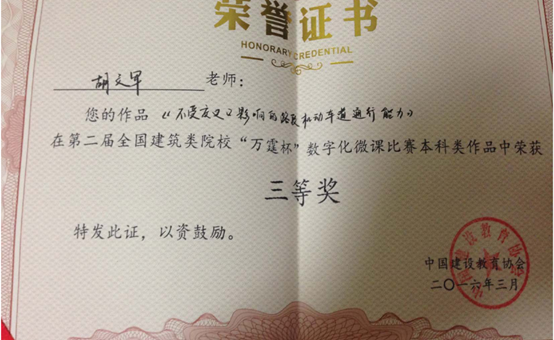 荣誉证书
HONORARY CREDENTIAL
胡文军 老师：
您的作品《不受交叉口影响的路段机动车道通行能力》
在第二届全国建筑类院校“万霆杯”数字化微课比赛本科类作品中荣获
三等奖
特发此证，以资鼓励。
中国建设教育协会
二〇一六年三月
中国建设教育协会